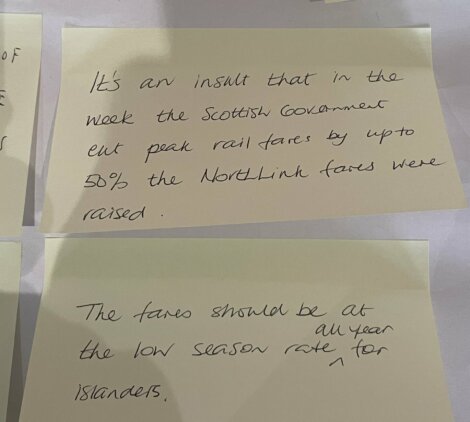 OF
It's an insult that in the
week the Scottish Government
cut peak rail fares by up to
50% the NorthLink fares were
raised.
The fares should be at
the low season rate all year for
islanders.